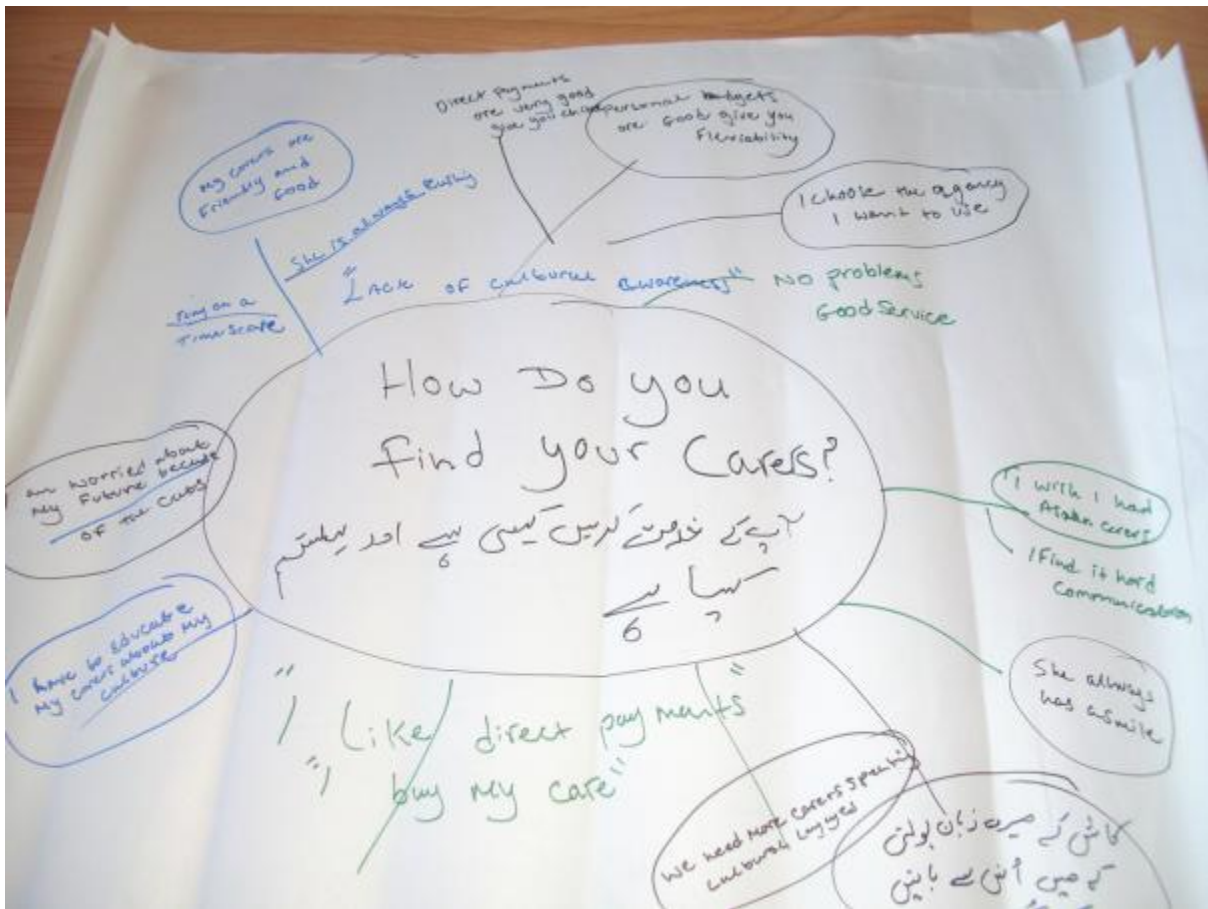 Direct payments
are very good
give you choice
personal budgets
are Good give you
Flexsability
My carers are
Friendly and
Good
She is always Rushing
I choose the agency
I want to use
"Lack of cultural awareness"
No problems
Good Service
on a
Timescale
How Do you
find your Carers?
آپ کے خدمت کریں کیسی ہے اور
کیسا ہے
I am worried about
My Future because
of the cuts
I have to educate
My carers about My
culture
"I wish I had
Asian carers
I Find it hard
Communication
She always
has a smile
"I Like direct payments"
"I buy my care"
We need More carers speaking
cultural
کاش کے میرے زبان بولتی
کے میں اُن سے باتیں